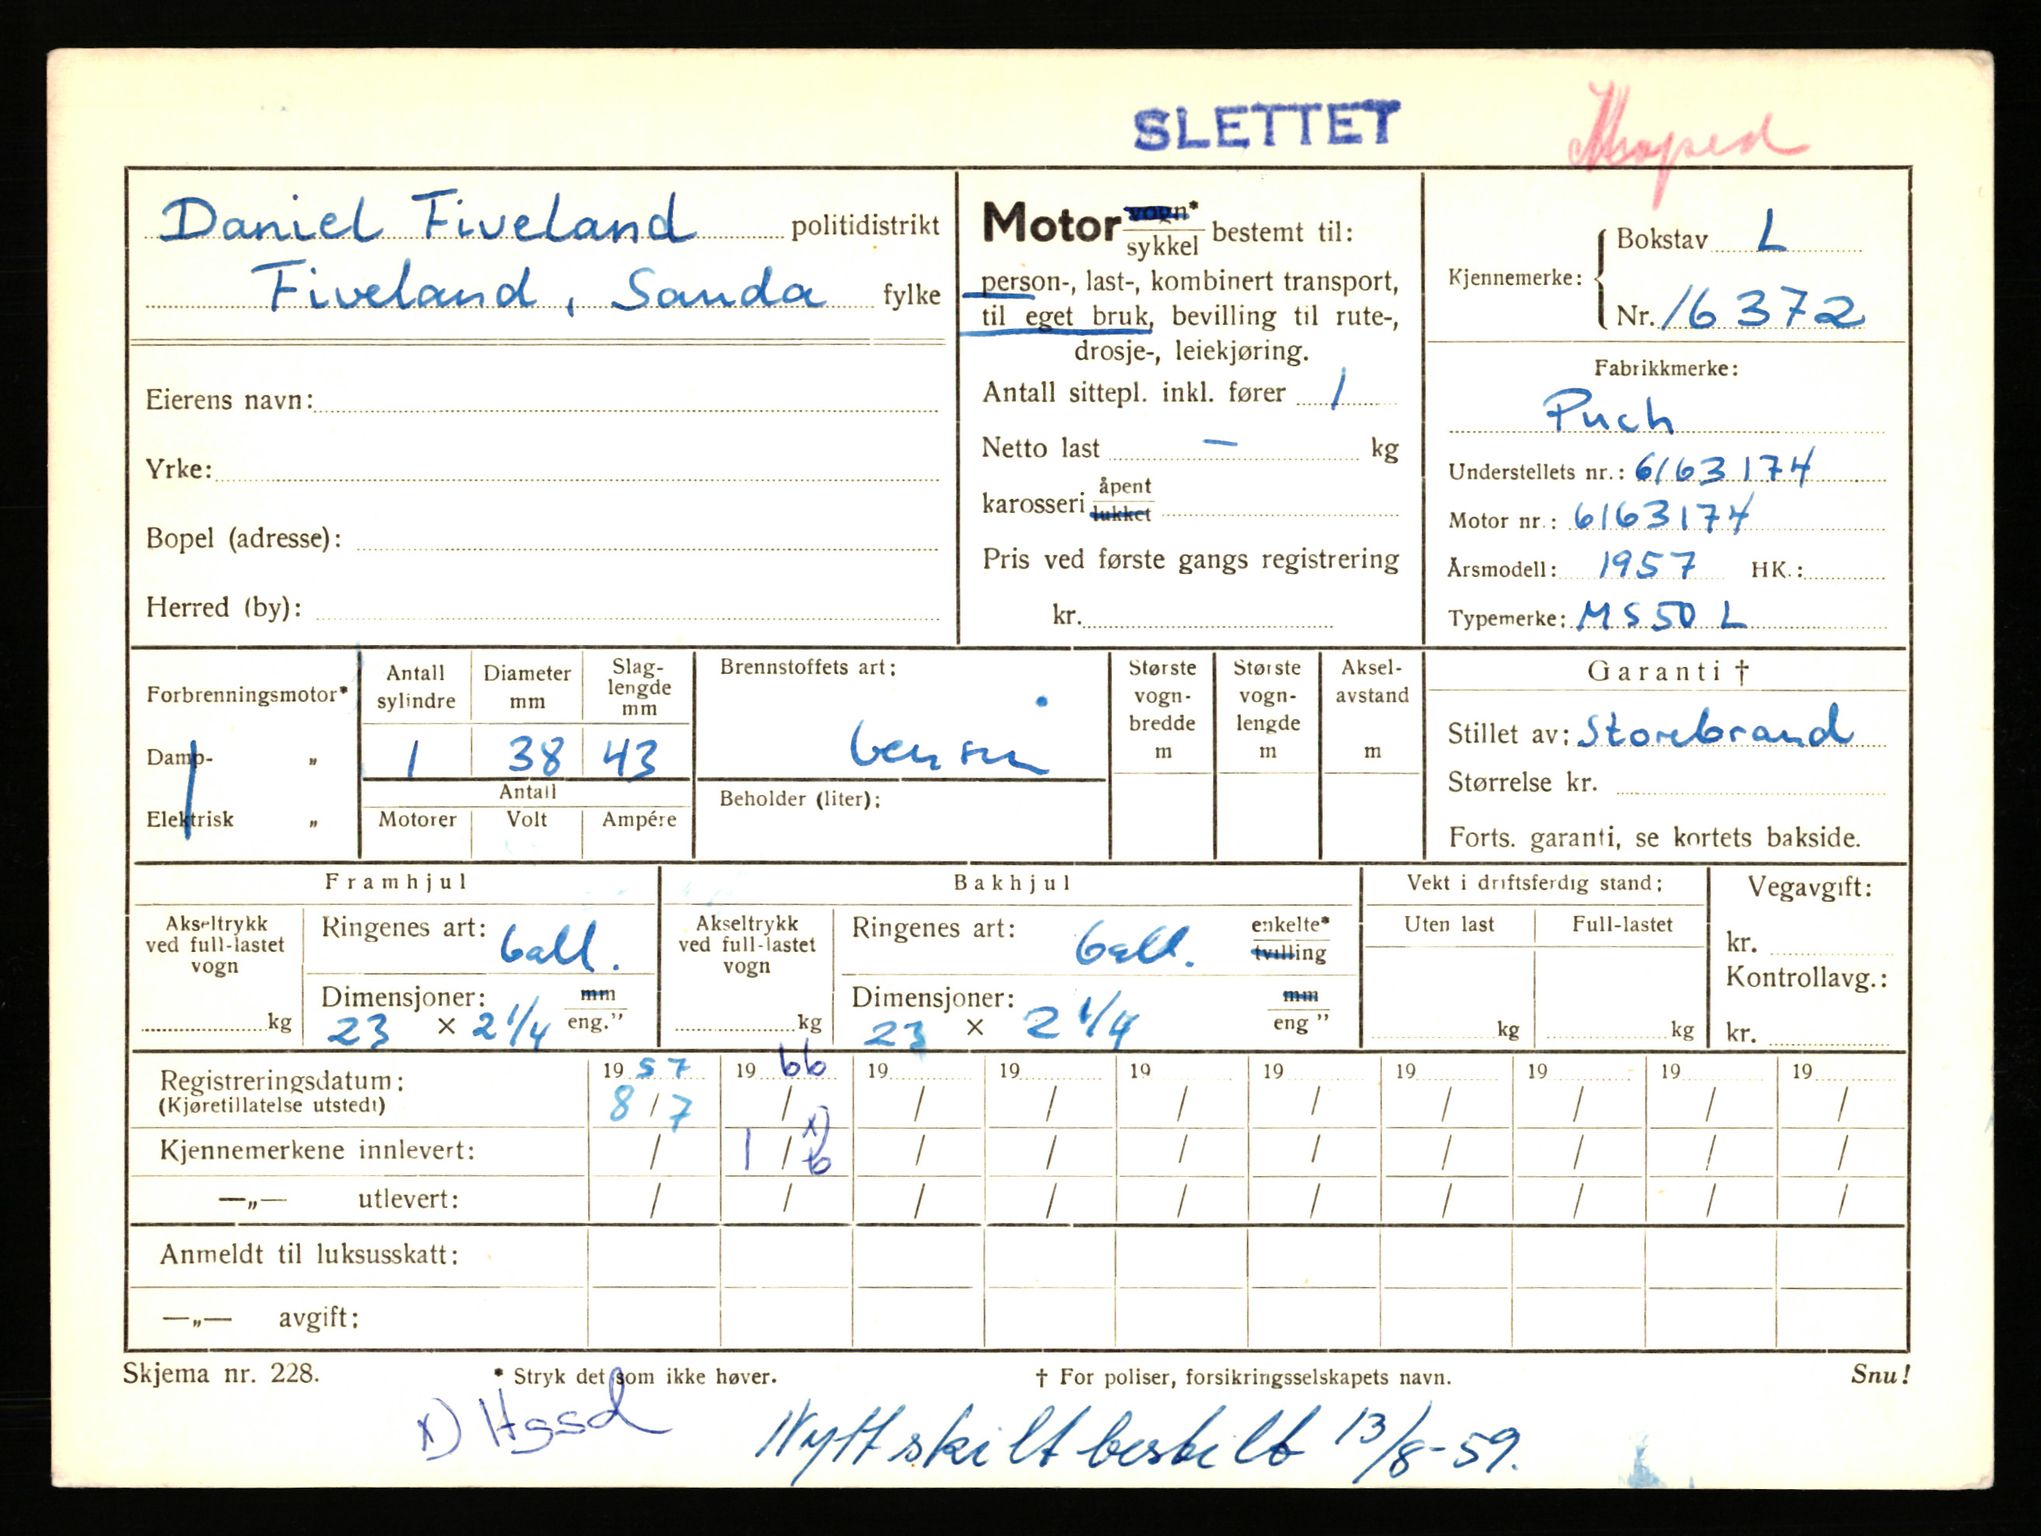 SLETTET
Moped
Daniel Fiveland politidistrikt
Fiveland, Sanda fylke
Eierens navn:
Yrke:
Bopel (adresse):
Herred (by):
Motor vogn*
sykkel bestemt til:
person-, last-, kombinert transport,
til eget bruk, bevilling til rute-,
drosje-, leiekjøring.
Antall sittepl. inkl. fører 1
Netto last — kg
karosseri åpent
lukket
Pris ved første gangs registrering
kr.
Kjennemerke: Bokstav L
Nr. 16372
Fabrikkmerke:
Puch
Understellets nr.: 6163174
Motor nr.: 6163174
Årsmodell: 1957 HK.:
Typemerke: MS 50 L
Forbrenningsmotor*
Damp- „
Elektrisk „
Antall sylindre Diameter mm Slag-lengde mm
1 38 43
Antall
Motorer Volt Ampére
Brennstoffets art:
bensin
Beholder (liter):
Største vogn-bredde m
Største vogn-lengde m
Aksel-avstand m
Garanti †
Stillet av: Storebrand
Størrelse kr.
Forts. garanti, se kortets bakside.
Framhjul
Akseltrykk ved full-lastet vogn
kg
Ringenes art: ball.
Dimensjoner: mm
23 × 2 1/4 eng.”
Bakhjul
Akseltrykk ved full-lastet vogn
kg
Ringenes art: ball. enkelte*
tvilling
Dimensjoner: mm
23 × 2 1/4 eng ”
Vekt i driftsferdig stand:
Uten last Full-lastet
kg kg
Vegavgift:
kr.
Kontrollavg.:
kr.
Registreringsdatum: 1957 1966 19 19 19 19 19 19 19 19
(Kjøretillatelse utstedt) 8/7 / / / / / / / / /
Kjennemerkene innlevert: / 1/6 x) / / / / / / / /
—„— utlevert: / / / / / / / / / /
Anmeldt til luksusskatt:
—„— avgift:
Skjema nr. 228. * Stryk det som ikke høver. † For poliser, forsikringsselskapets navn. Snu!
x) Hgsd
Nytt skilt bestilt 13/8-59.